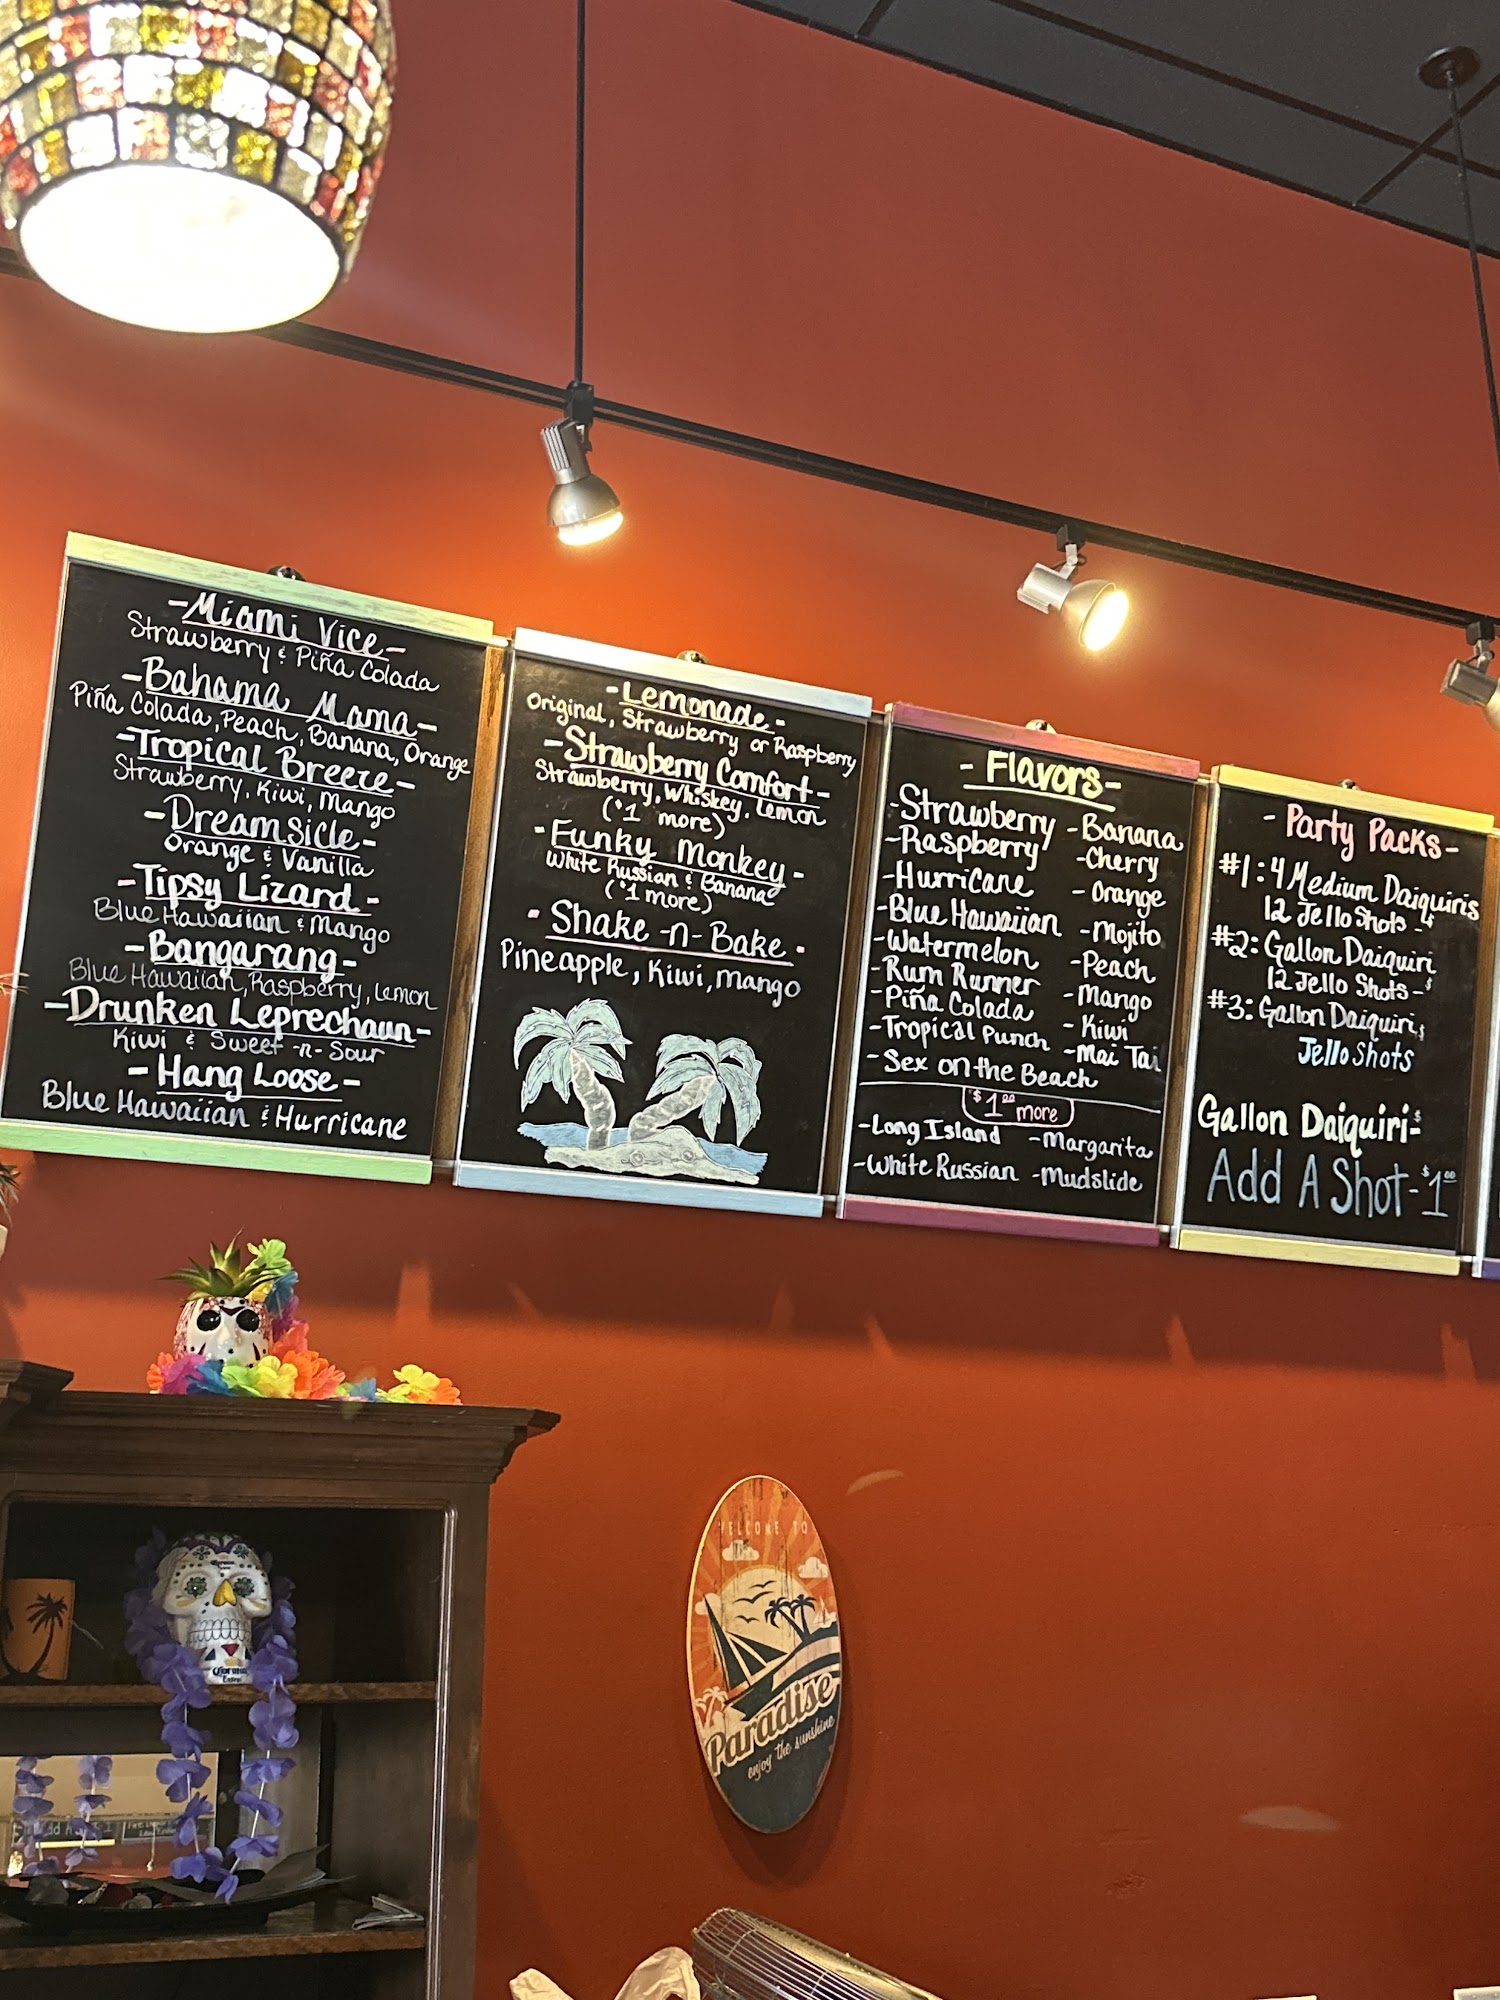 -Miami Vice-
Strawberry & Piña Colada
-Bahama Mama-
Piña Colada, Peach, Banana, Orange
-Tropical Breeze-
Strawberry, Kiwi, Mango
-Dreamsicle-
Orange & Vanilla
-Tipsy Lizard-
Blue Hawaiian & Mango
-Bangarang-
Blue Hawaiian, Raspberry, Lemon
-Drunken Leprechaun-
Kiwi & Sweet -n- Sour
-Hang Loose-
Blue Hawaiian & Hurricane
-Lemonade-
Original, Strawberry or Raspberry
-Strawberry Comfort-
Strawberry, Whiskey, Lemon
($1 more)
-Funky Monkey-
White Russian & Banana
($1 more)
-Shake -n- Bake-
Pineapple, Kiwi, Mango
-Flavors-
-Strawberry
-Raspberry
-Hurricane
-Blue Hawaiian
-Watermelon
-Rum Runner
-Piña Colada
-Tropical Punch
-Sex on the Beach
-Banana
-Cherry
-Orange
-Mojito
-Peach
-Mango
-Kiwi
-Mai Tai
$1.00 more
-Long Island -Margarita
-White Russian -Mudslide
-Party Packs-
#1: 4 Medium Daiquiris
12 Jello Shots -$
#2: Gallon Daiquiri
12 Jello Shots -$
#3: Gallon Daiquiri $
Jello Shots
Gallon Daiquiri-$
Add A Shot-$1.00
WELCOME TO
Paradise
enjoy the sunshine
Corona
Extra